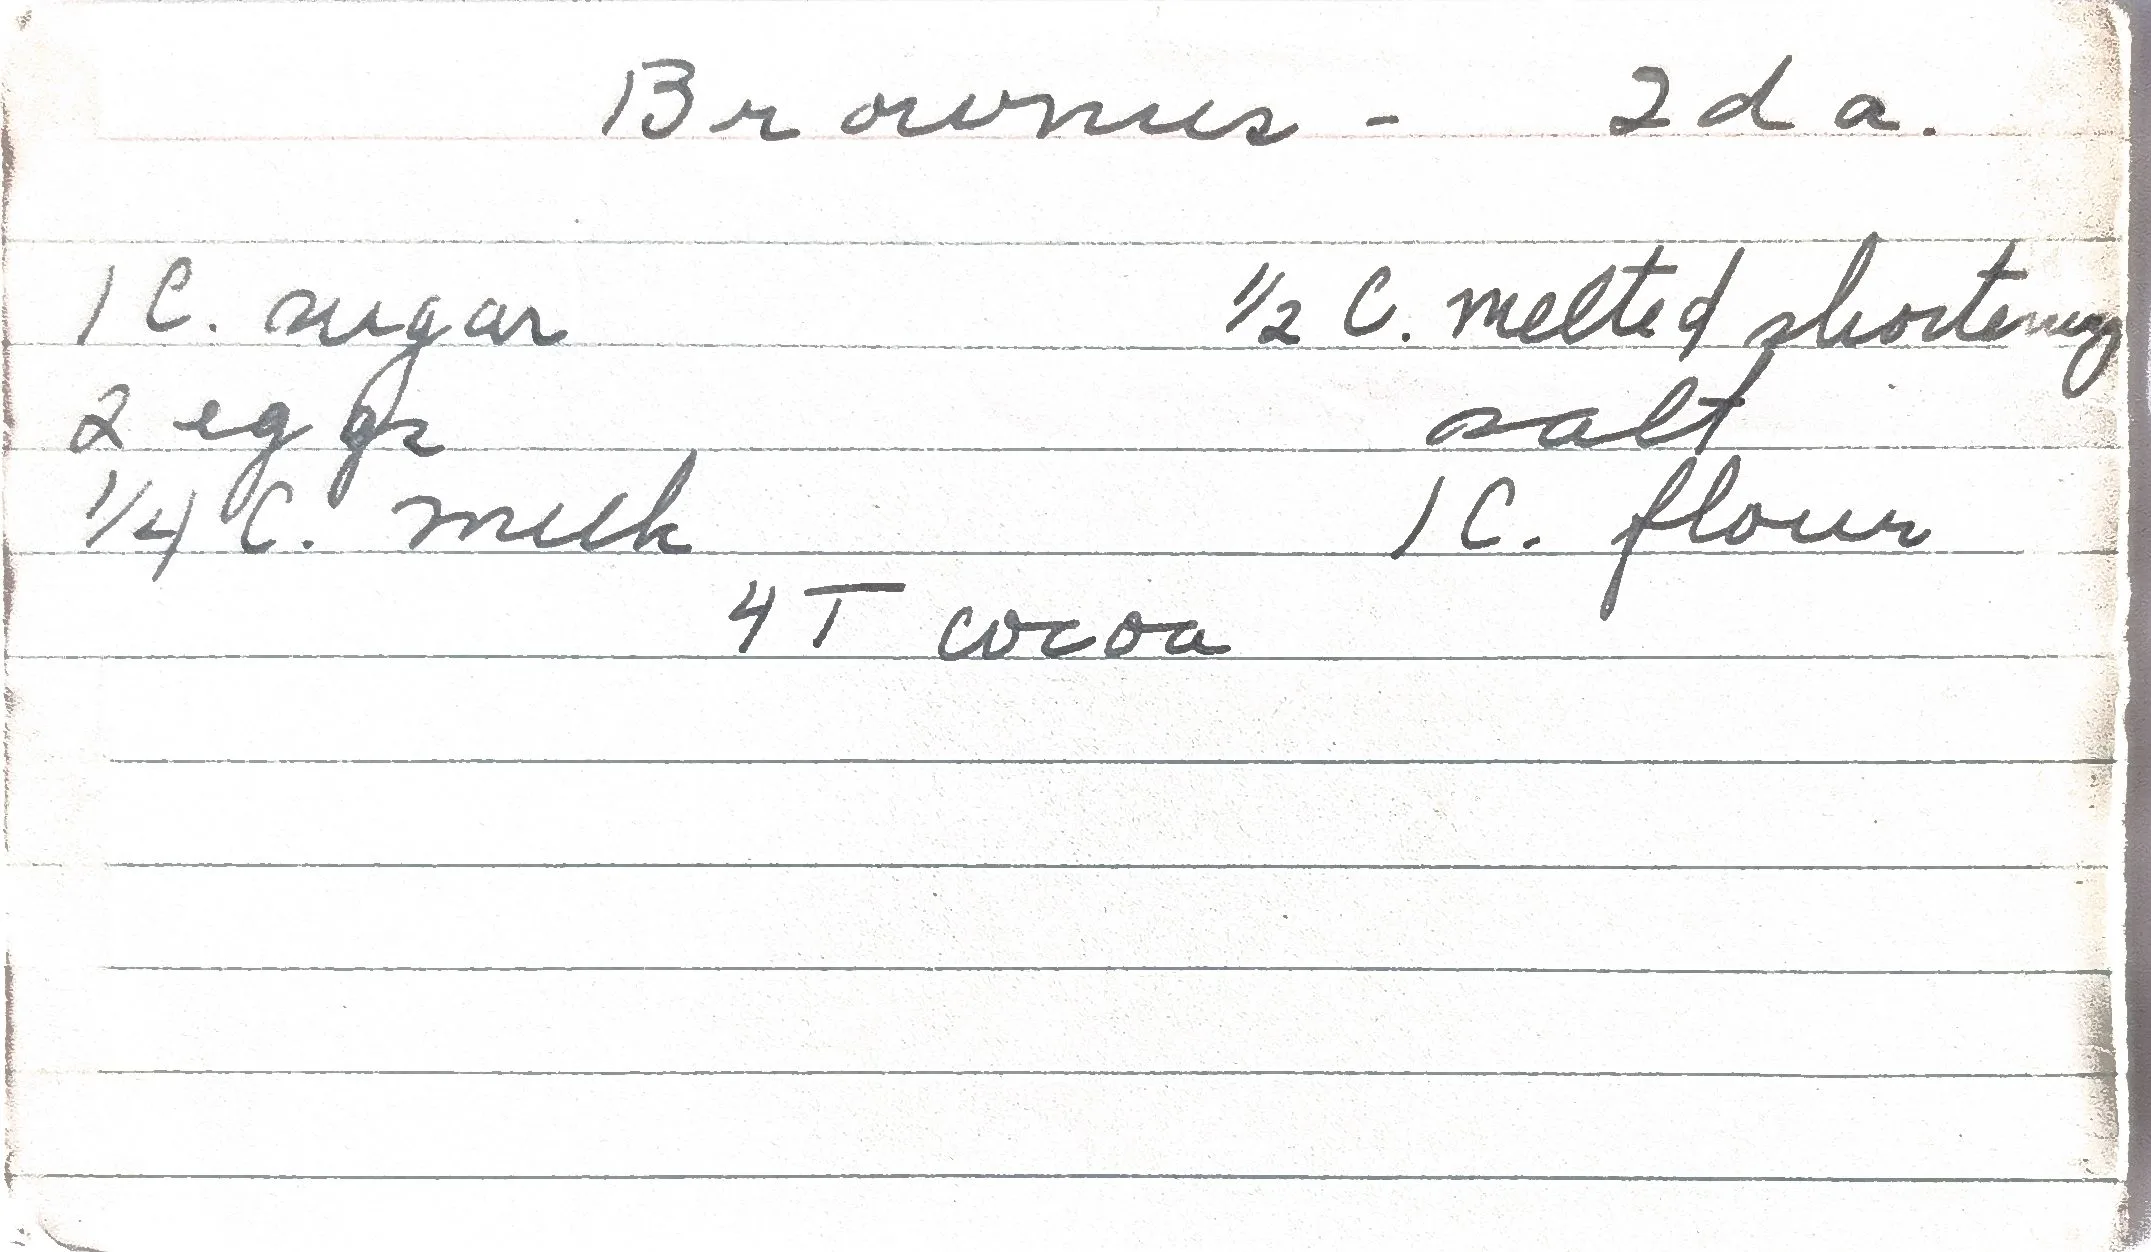 Brownies - 2da.
1 C. sugar 1/2 C. melted shortening
2 eggs salt
1/4 C. milk 1 C. flour
4 T cocoa